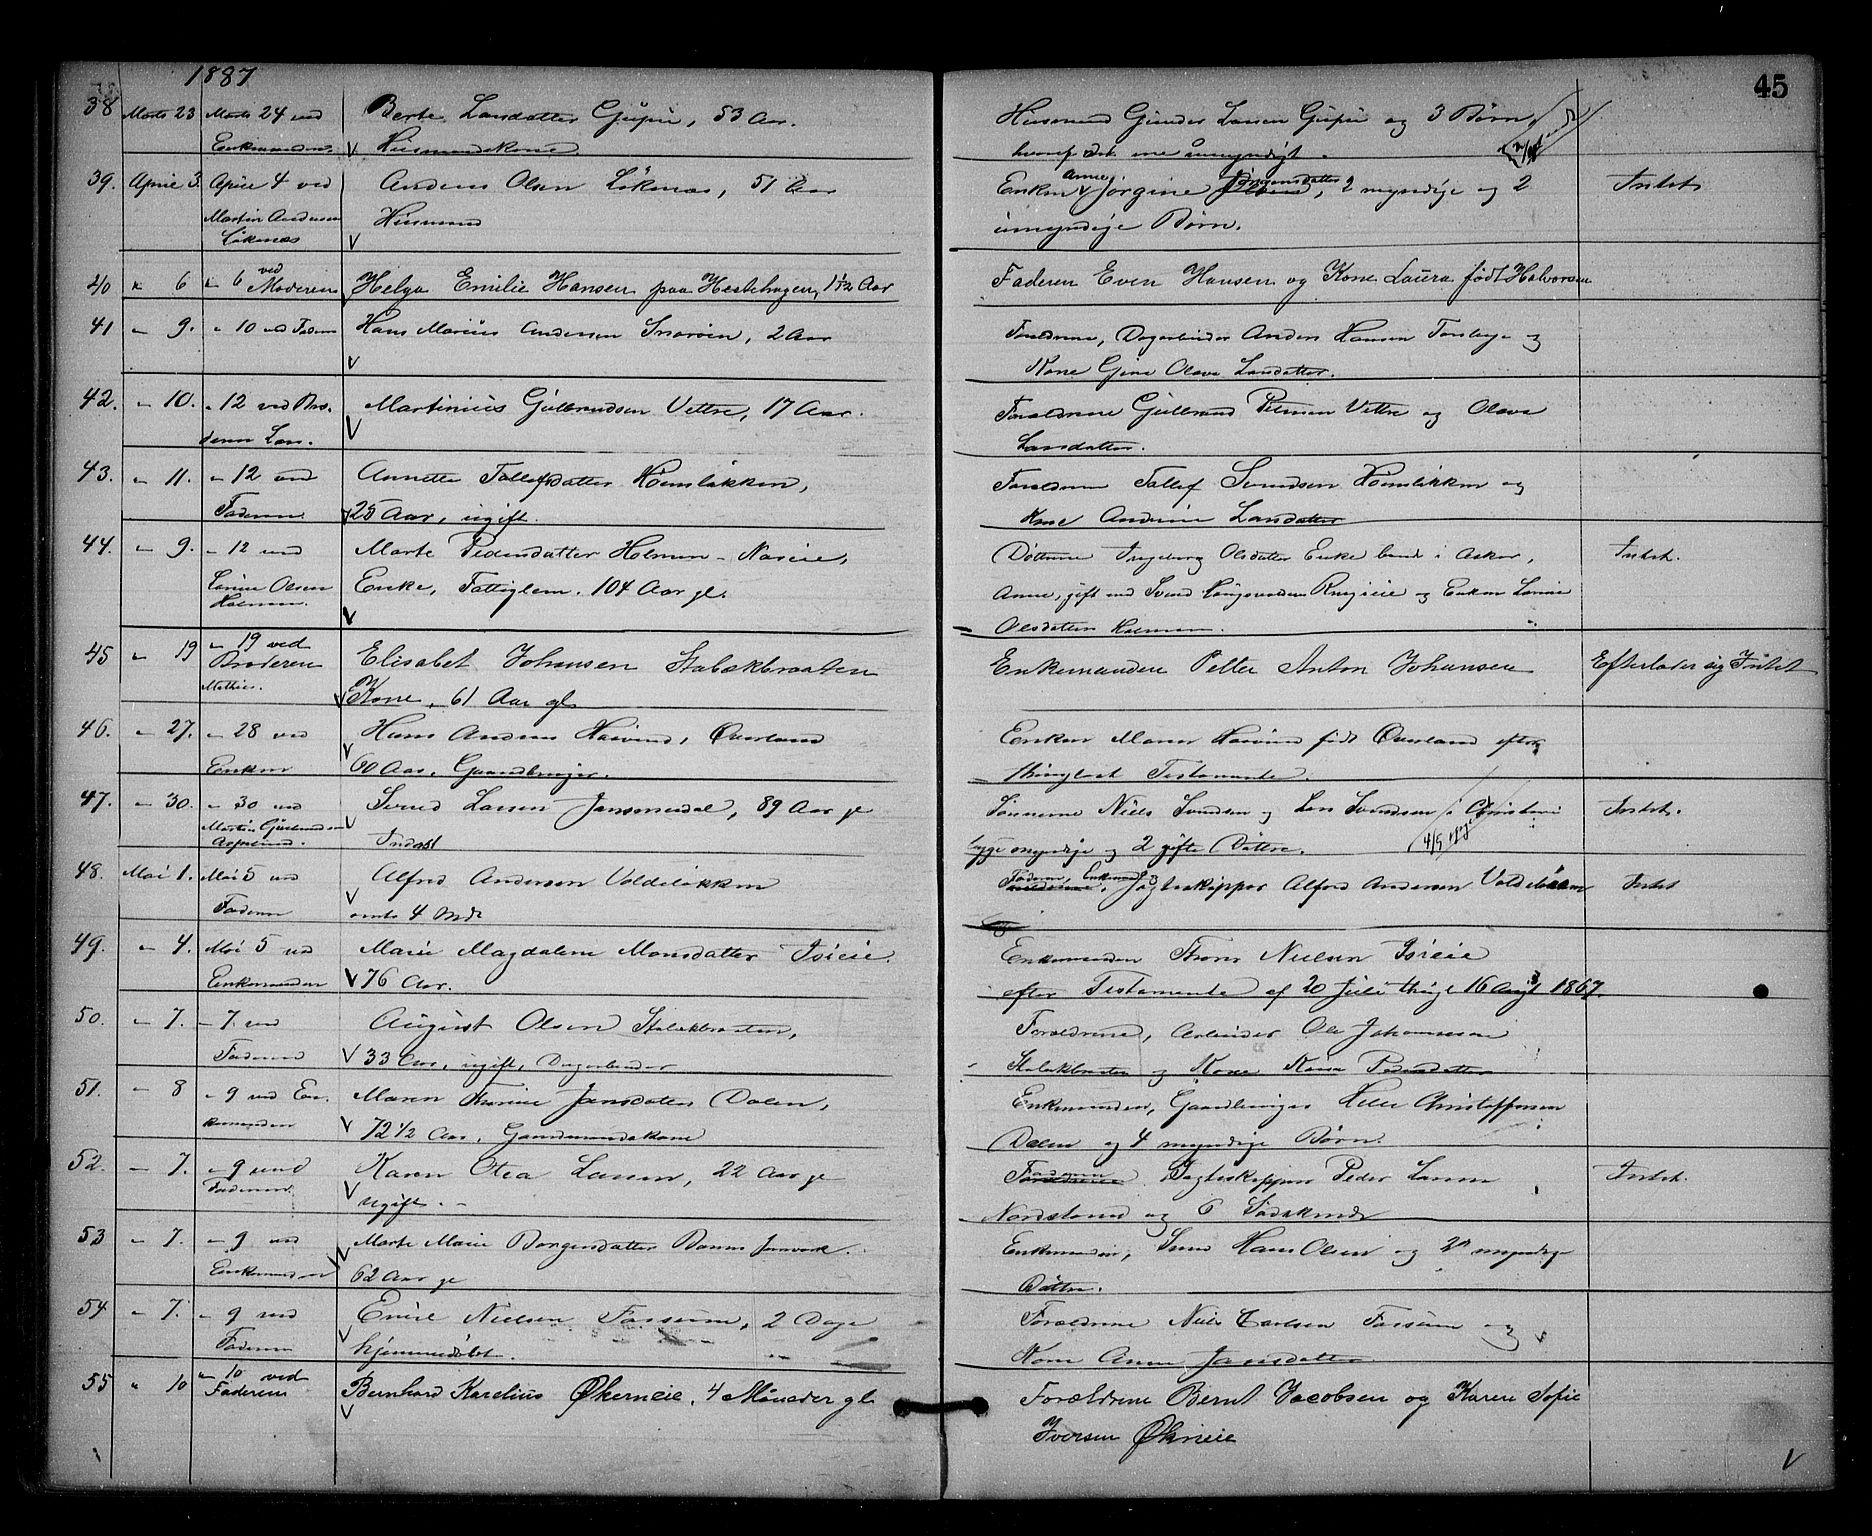 1887
45
38 Marts 23 Marts 24 ved Berte Larsdatter Gupu, 53 Aar. Husmand Gunder Larsen Gupu og 3 Børn,
Enkemanden. Husmandskone. hvoraf det ene umyndigt.
39. April 3. April 4 ved Anders Olsen Løkenæs, 51 Aar Enken Anne Jørgine Jørgensdatter, 2 myndige og 2 Intet
Martin Andersen Husmand umyndige Børn.
Løkenæs
40 " 6 " 6 ved Moderen Helga Emilie Hansen paa Hestehagen, 1 1/12 Aar Faderen Even Hansen og Kone Laura født Halvorsen
41 " 9. " 10 ved Faderen Hans Marius Andersen Snarøen, 2 Aar Forældrene, Dagarbeider Anders Hansen og
Kone Gina Olava Larsdatter.
42. " 10. " 12 ved Bro- Martinius Gulbrandsen Vettre, 17 Aar. Forældrene Gulbrand Vettre og Olava
deren Lars. Larsdatter.
43. " 11. " 12 ved Annette Tollefsdatter Hønsløkken, Forældrene Tollef Svendsen Hønsløkken og
Faderen. 25 Aar, ugift. Kone Andrine Larsdatter
44. " 9. " 12 ved Marte Pedersdatter Holmen - Næseie, Døttrene Ingeborg Olsdatter Enke bund i Asker, Intet.
Larine Olsen Enke, Fattiglem. 104 Aar gl. Anne, gift med Svend og Enken Larine
Holmen. Olsdatter Holmen.
45 " 19 " 19 ved Elisabet Johansen Stabækbraaten Enkemanden Petter Anton Johansen Efterlader sig Intet
Broderen
Mathias. Kone, 61 Aar gl.
46. " 27. " 28 ved Hans Andreas Høivind, Øverland Enken Maren Høivind født Øverland efter
Enken 60 Aar. Gaardbruger. thinglæst Testamente.
47. " 30. " 30 ved Svend Larsen 89 Aar gl Sønnerne Niels Svendsen og Lars Svendsen i Christiania Intet.
Martin Gulbrandsen Inderst begge myndige og 2 gifte Døttre. 4/5
48. Mai 1. Mai 5 ved Alfred Andersen Valdeløkken Faderen, Enkemand Jagtskipper Alfred Andersen Intet
Faderen omtr 4 Mdr
49. " 4. Mai 5 ved Marie Magdalene Monsdatter Isieie. Enkemanden Thom Nielsen Isieie
Enkemanden 76 Aar. efter Testamente af 20 Juli thingl 16 Augt 1867.
50. " 7. " 7. ved August Olsen Stabækbraaten, Forældrene, Arbeider Ole Johannesen
Faderen 33 Aar, ugift, Dagarbeider Stabækbraaten og Kone Karen Pedersdatter
51. " 8 " 9 ved En- Maren Karine Jansdatter Dalen, Enkemanden, Gaardbruger Helle Christoffersen
kemanden 72 1/2 Aar. Gaardmandskone Dalen og 4 myndige Børn.
52. " 7. " 9 ved Karen Otea Larsen, 22 Aar gl Faderen Jagtskipper Peder Larsen Intet.
Faderen ugift. Nordstrand og 6 Sødskende
53 " 7. " 9 ved Marte Marie Borgersdatter Bærums Jernværk. Enkemanden, Smed Hans Olsen og 2 myndige
Enkemanden 62 Aar gl Døttre.
54 " 7. " 9 ved Emil Nielsen Fossum, 2 Dage Forældrene Niels Carlsen Fossum og
Faderen hjemmedøbt. Kone Anne Jansdatter
55 " 10 " 10 ved Bernhard Karelius Økerneie, 4 Maaneder gl Forældrene Bernt Jacobsen og Karen Sofie
Faderen Iversen Økerneie